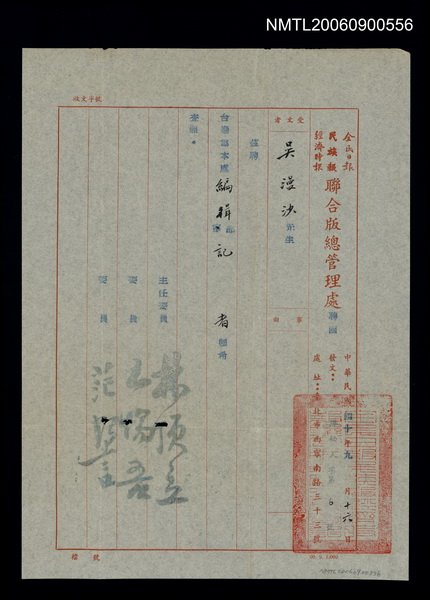 NMTL20060900556
收文字號
全民日報
民族報
經濟時報
聯合版總管理處聘函
中華民國四十年九月十六日
發文
號
處址：台北市西寧南路三十三號
受文者
吳漫沙先生
事由
茲聘
台灣為本處編輯部記者順希
查照。
主任委員 林頂立
委員 王惕吾
委員 范鶴言
檔號
NMTL20060900556